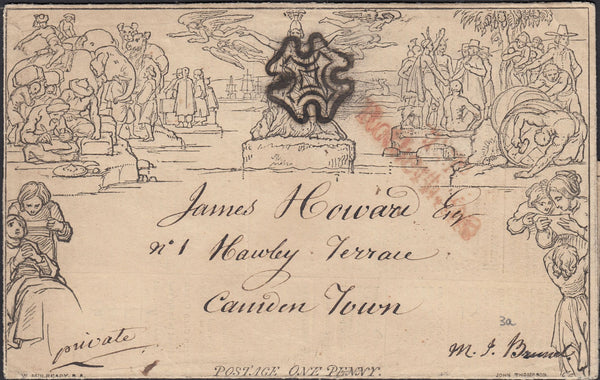 James Howard Esq
n° 1 Hawley Terrace
Camden Town
3a
private
M. I. Brunel
W. MULREADY. R.A.
POSTAGE ONE PENNY.
JOHN THOMPSON